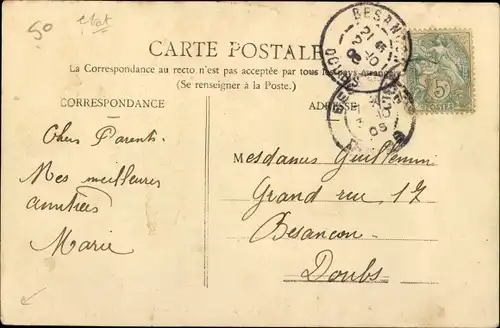 50
état
CARTE POSTALE
La Correspondance au recto n'est pas acceptée par tous les pays étrangers
(Se renseigner à la Poste.)
CORRESPONDANCE
ADRESSE
BESANÇON
DOUBS
05
5
Chers Parents
Mes meilleures
amitiées
Marie
Mesdames Guillemin
Grand rue 17
Besançon
Doubs